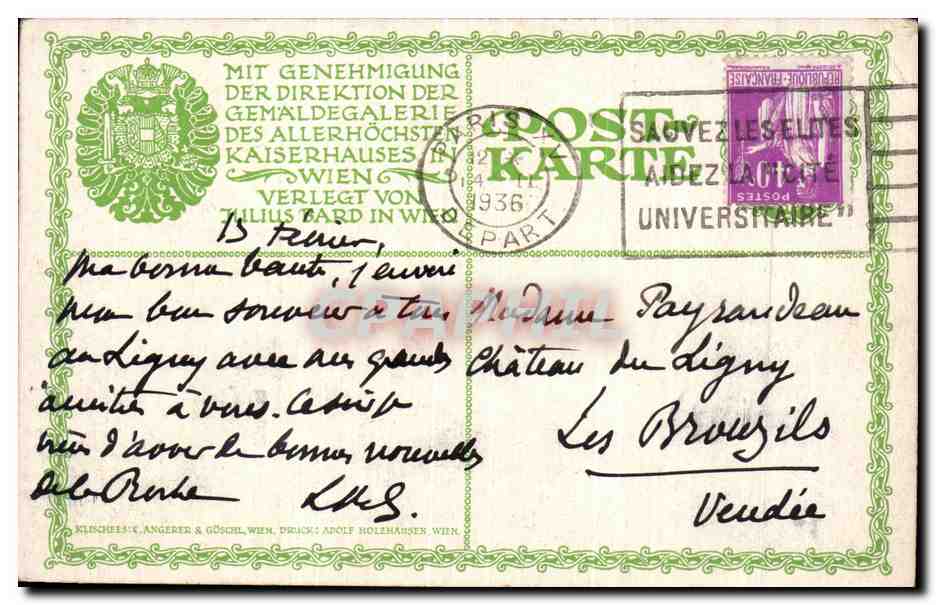 MIT GENEHMIGUNG
DER DIREKTION DER
GEMÄLDEGALERIE
DES ALLERHÖCHSTEN
KAISERHAUSES IN
WIEN
VERLEGT VON
JULIUS BARD IN WIEN
POST-
KARTE
PARIS
1936
DEPART
SAUVEZ LES ELITES
AIDEZ LA "CITÉ
UNIVERSITAIRE"
REPUBLIQUE FRANÇAISE
POSTES
40c
Février,
ma bonne
mon bon souvenir à tous
au Ligny avec mes grandes
amitiés à vous. Ce soir je
viens d'avoir de bonnes nouvelles
de la Roche
Madame Payraudeau
Château du Ligny
Les Brouzils
Vendée
KLISCHEES: C. ANGERER & GÖSCHL, WIEN. DRUCK: ADOLF HOLZHAUSEN, WIEN.
CPAPHIL